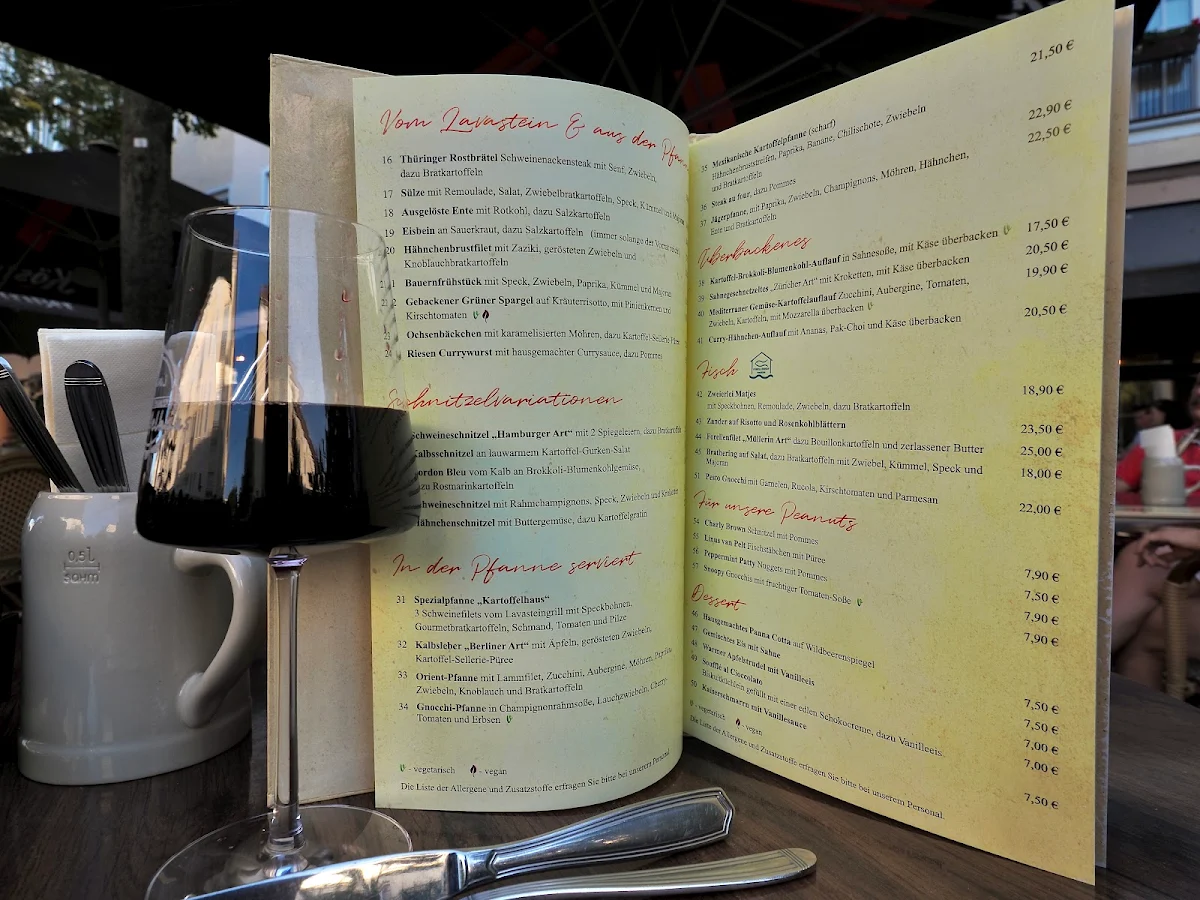 Vom Lavastein & aus der
16 Thüringer Rostbrätel Schweinenackensteak mit Senf, Zwiebeln,
dazu Bratkartoffeln
17 Sülze mit Remoulade, Salat, Zwiebelbratkartoffeln, Speck, Kümmel und
18 Ausgelöste Ente mit Rotkohl, dazu Salzkartoffeln
19 Eisbein an Sauerkraut, dazu Salzkartoffeln (immer solange der Vorrat reicht)
20 Hähnchenbrustfilet mit Zaziki, gerösteten Zwiebeln und
Knoblauchbratkartoffeln
Bauernfrühstück mit Speck, Zwiebeln, Paprika, Kümmel und Majoran
Gebackener Grüner Spargel auf Kräuterrisotto, mit Pinienkernen und
Kirschtomaten
Ochsenbäckchen mit karamelisierten Möhren, dazu Kartoffel-Sellerie-Püree
Riesen Currywurst mit hausgemachter Currysauce, dazu Pommes
Schnitzelvariationen
Schweineschnitzel „Hamburger Art“ mit 2 Spiegeleiern, dazu Bratkartoffeln
Kalbsschnitzel an lauwarmem Kartoffel-Gurken-Salat
Cordon Bleu vom Kalb an Brokkoli-Blumenkohlgemüse,
dazu Rosmarinkartoffeln
Schweineschnitzel mit Rahmchampignons, Speck, Zwiebeln und
Hähnchenschnitzel mit Buttergemüse, dazu Kartoffelgratin
In der Pfanne serviert
31 Spezialpfanne „Kartoffelhaus“
3 Schweinefilets vom Lavasteingrill mit Speckbohnen,
Gourmetbratkartoffeln, Schmand, Tomaten und Pilze
32 Kalbsleber „Berliner Art“ mit Äpfeln, gerösteten Zwiebeln,
Kartoffel-Sellerie-Püree
33 Orient-Pfanne mit Lammfilet, Zucchini, Aubergine, Möhren, Paprika
Zwiebeln, Knoblauch und Bratkartoffeln
34 Gnocchi-Pfanne in Champignonrahmsoße, Lauchzwiebeln, Cherry-
Tomaten und Erbsen
- vegetarisch - vegan
Die Liste der Allergene und Zusatzstoffe erfragen Sie bitte bei unserem Personal.
35 Mexikanische Kartoffelpfanne (scharf) 21,50 €
Hähnchenbruststreifen, Paprika, Banane, Chilischote, Zwiebeln
und Bratkartoffeln
36 Steak au four, dazu Pommes 22,90 €
37 Jägerpfanne, mit Paprika, Zwiebeln, Champignons, Möhren, Hähnchen, 22,50 €
Ente und Bratkartoffeln
Überbackenes
38 Kartoffel-Brokkoli-Blumenkohl-Auflauf in Sahnesoße, mit Käse überbacken 17,50 €
39 Sahnegeschnetzeltes „Züricher Art“ mit Kroketten, mit Käse überbacken 20,50 €
40 Mediterraner Gemüse-Kartoffelauflauf Zucchini, Aubergine, Tomaten, 19,90 €
Zwiebeln, Kartoffeln, mit Mozzarella überbacken
41 Curry-Hähnchen-Auflauf mit Ananas, Pak-Choi und Käse überbacken 20,50 €
Fisch
42 Zweierlei Matjes 18,90 €
mit Speckbohnen, Remoulade, Zwiebeln, dazu Bratkartoffeln
43 Zander auf Risotto und Rosenkohlblättern 23,50 €
44 Forellenfilet „Müllerin Art“ dazu Bouillonkartoffeln und zerlassener Butter 25,00 €
45 Brathering auf Salat, dazu Bratkartoffeln mit Zwiebel, Kümmel, Speck und 18,00 €
Majoran
51 Pesto Gnocchi mit Garnelen, Rucola, Kirschtomaten und Parmesan 22,00 €
Für unsere Peanuts
54 Charly Brown Schnitzel mit Pommes 7,90 €
55 Linus van Pelt Fischstäbchen mit Püree 7,50 €
56 Peppermint Patty Nuggets mit Pommes 7,90 €
57 Snoopy Gnocchis mit fruchtiger Tomaten-Soße 7,90 €
Dessert
46 Hausgemachtes Panna Cotta auf Wildbeerenspiegel 7,50 €
47 Gemischtes Eis mit Sahne 7,50 €
48 Warmer Apfelstrudel mit Vanilleeis 7,00 €
49 Soufflé al Cioccolato 7,00 €
Biskuitküchlein gefüllt mit einer edlen Schokocreme, dazu Vanilleeis
50 Kaiserschmarrn mit Vanillesauce 7,50 €
- vegetarisch - vegan
Die Liste der Allergene und Zusatzstoffe erfragen Sie bitte bei unserem Personal.
0,5l
SAHM